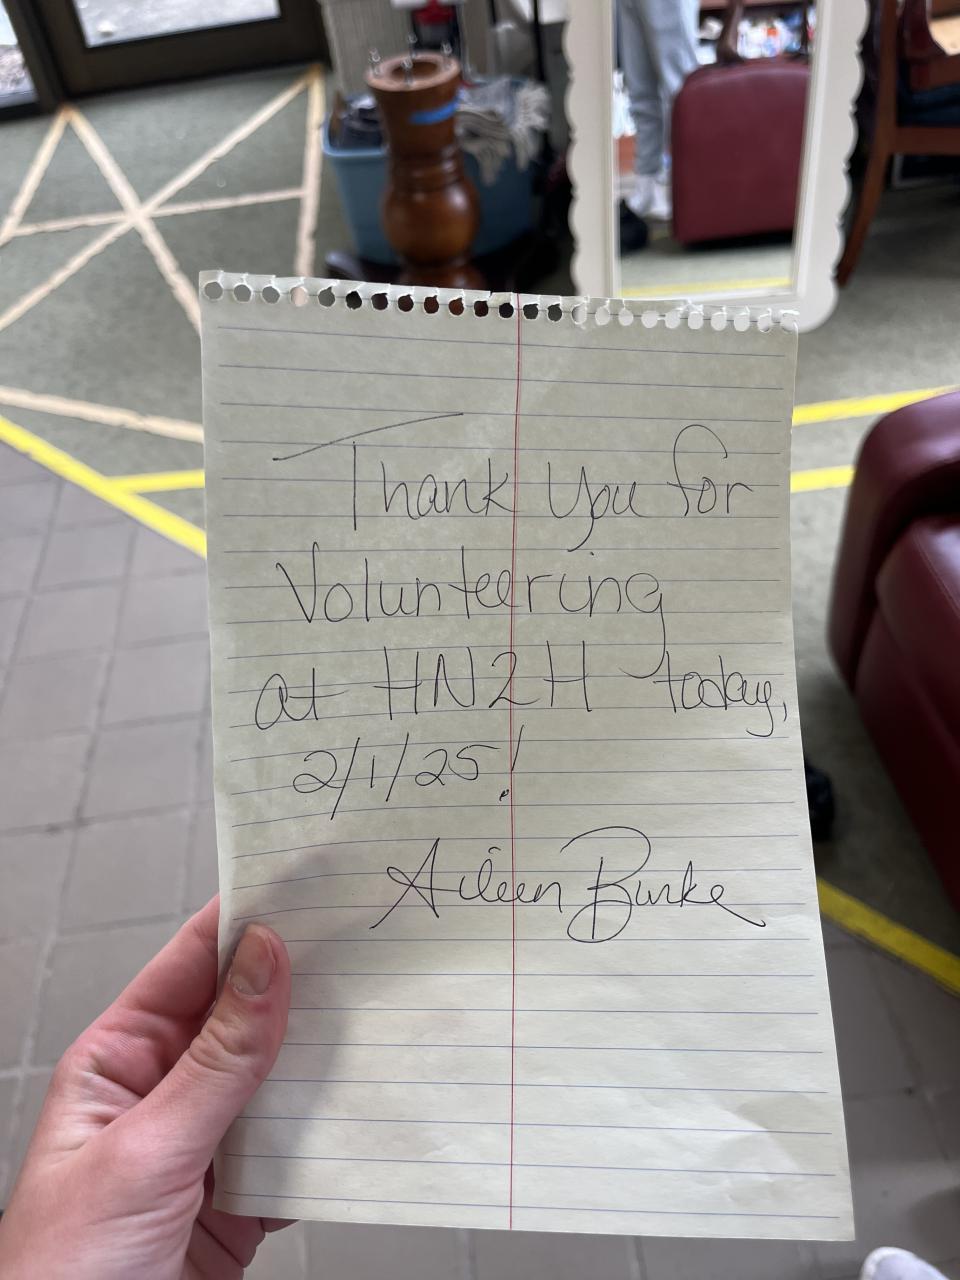 Thank you for
Volunteering
at HN2H today,
2/1/25!
Aileen Burke